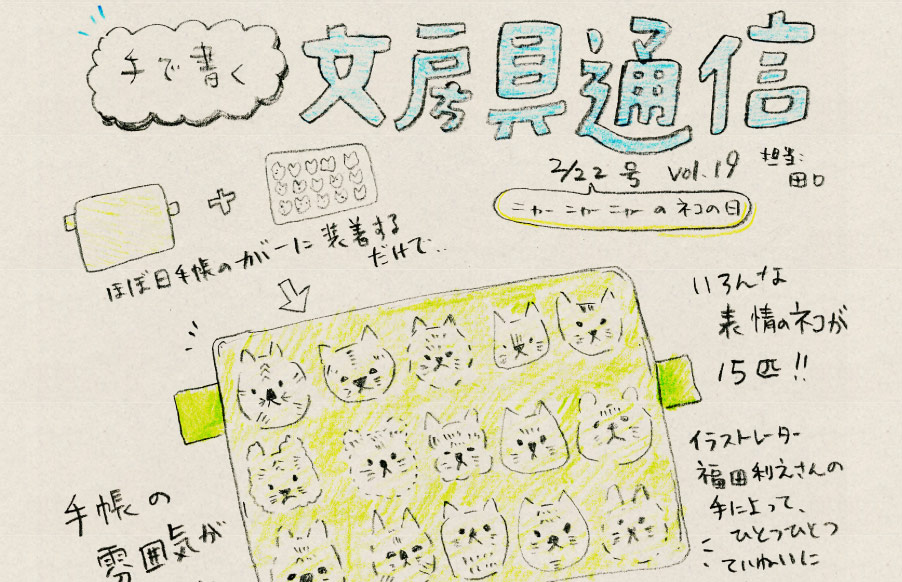 手で書く
文房具通信
2/22号 vol.19
担当:
田口
ニャー ニャー ニャー のネコの日
ほぼ日手帳のカバーに装着する
だけで..
いろんな
表情のネコが
15匹!!
イラストレーター
福田利之さんの
手によって、
ひとつひとつ
ていねいに
手帳の
雰囲気が